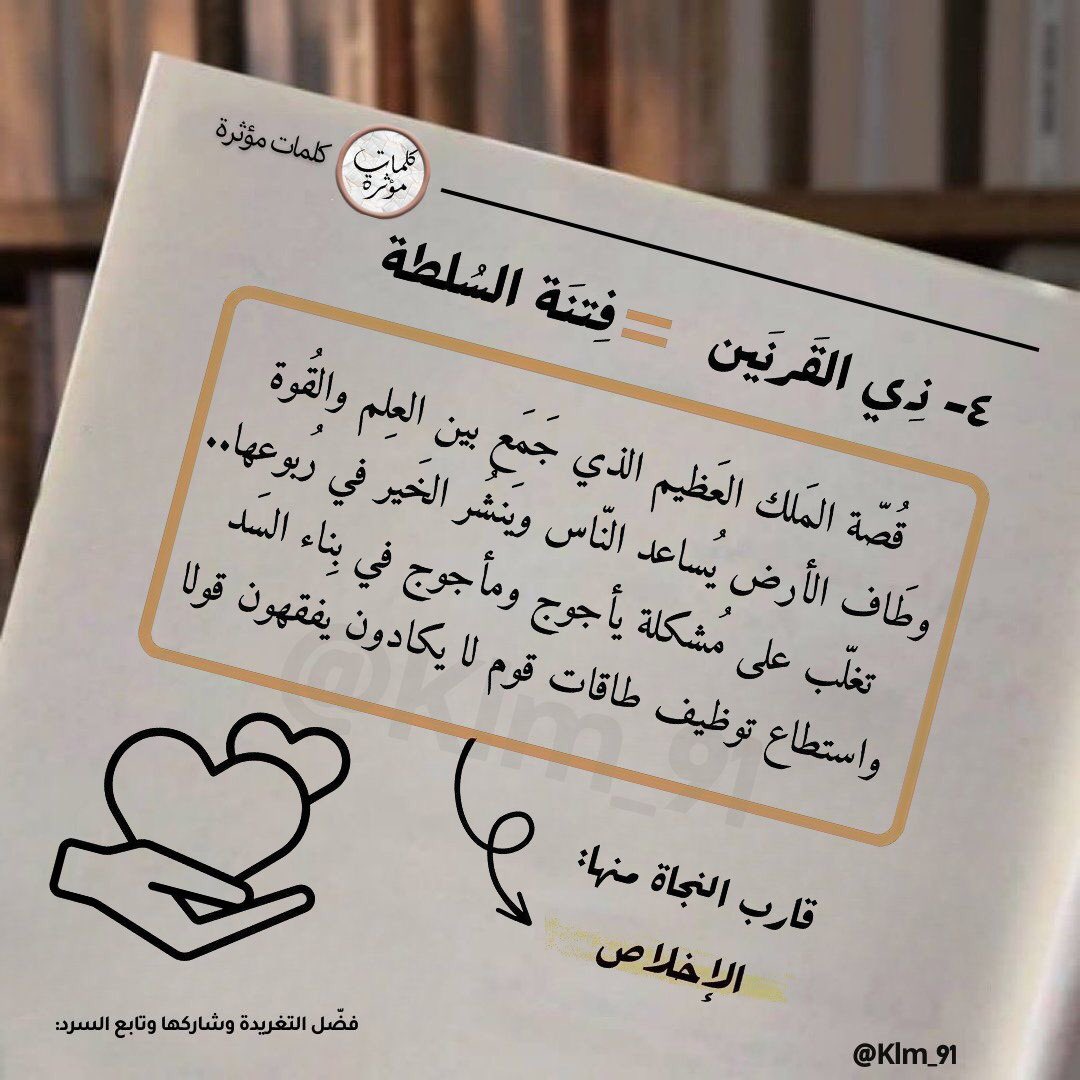 كلمات مؤثرة
كلمات
مؤثرة
٤- ذِي القَرنَين = فِتنَة السُلطة
قُصّة المَلك العَظيم الذي جَمَع بين العِلم والقُوة
وطَاف الأرض يُساعد النّاس ويَنشُر الخَير في رُبوعها..
تغلّب على مُشكلة يأجوج ومأجوج في بِناء السَد
واستطاع توظيف طاقات قوم لا يكادون يفقهون قولا
@Klm_91
قارب النجاة منها:
الإخلاص
فضّل التغريدة وشاركها وتابع السرد:
@Klm_91